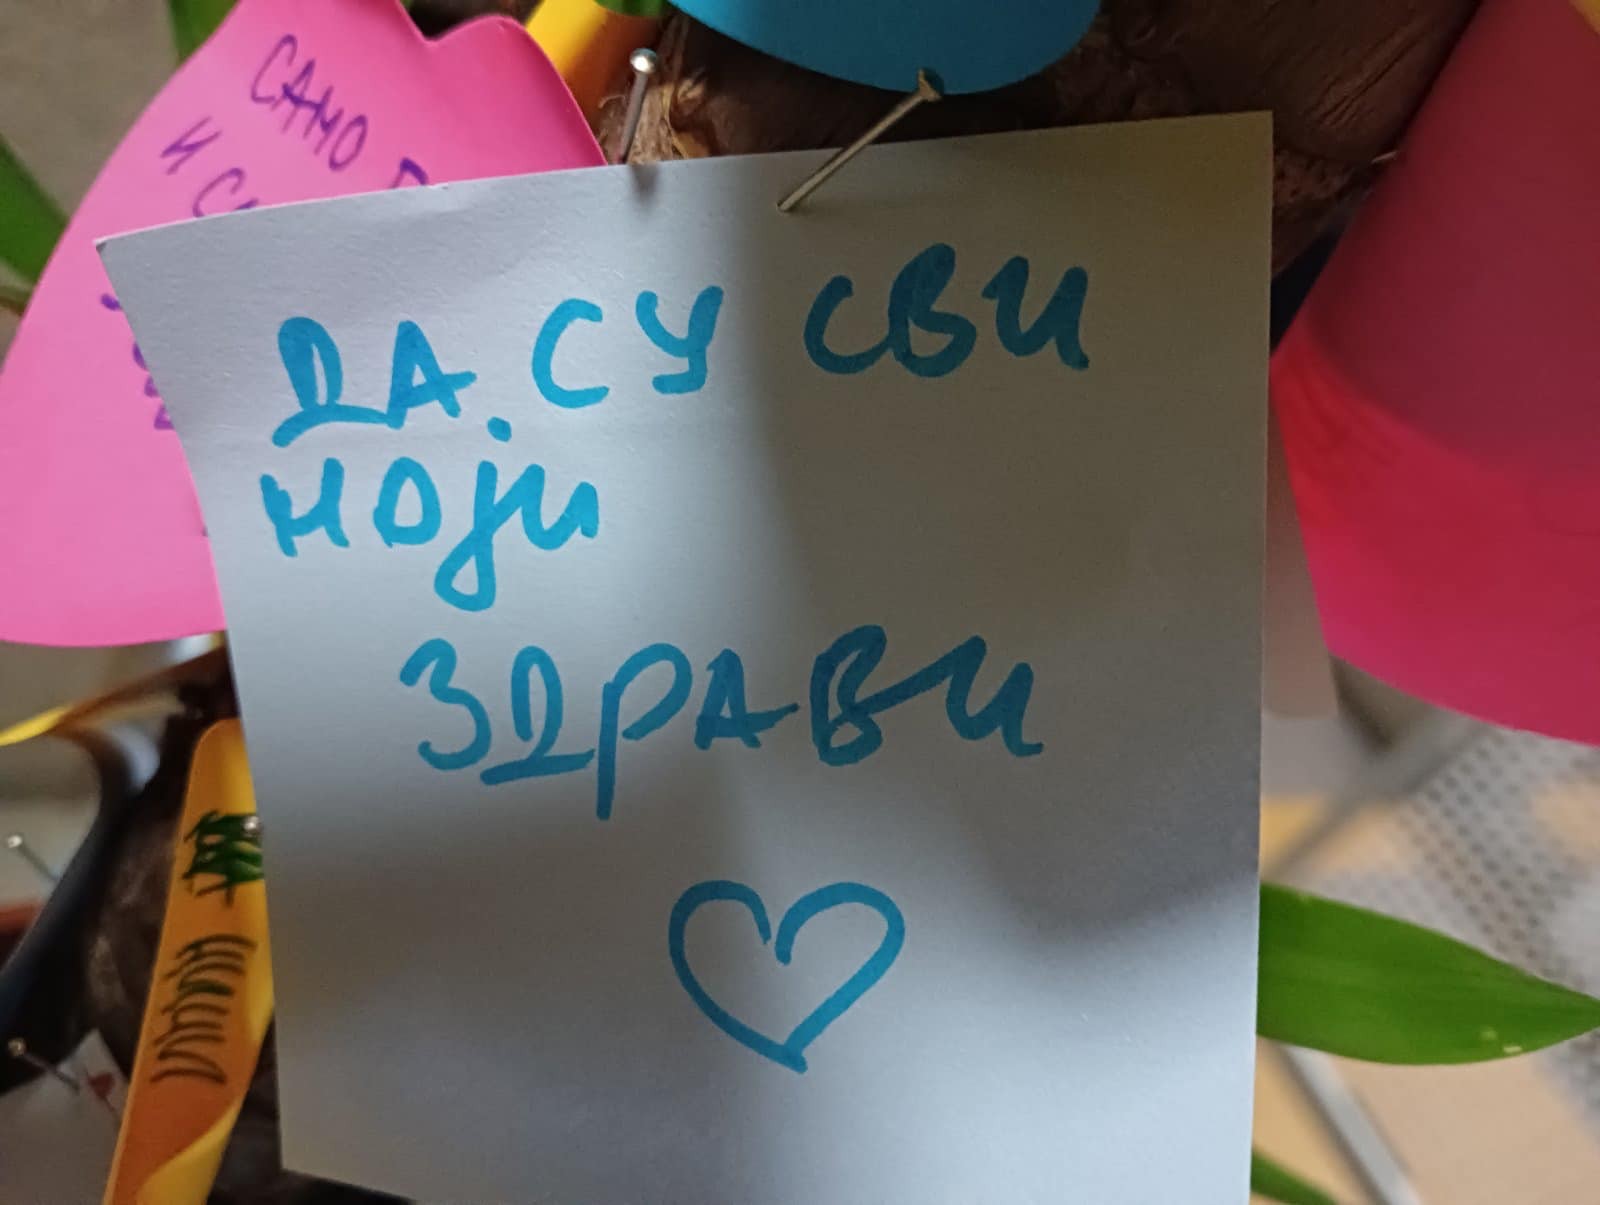 САМО
И
ДА СУ СВИ
МОЈИ
ЗДРАВИ